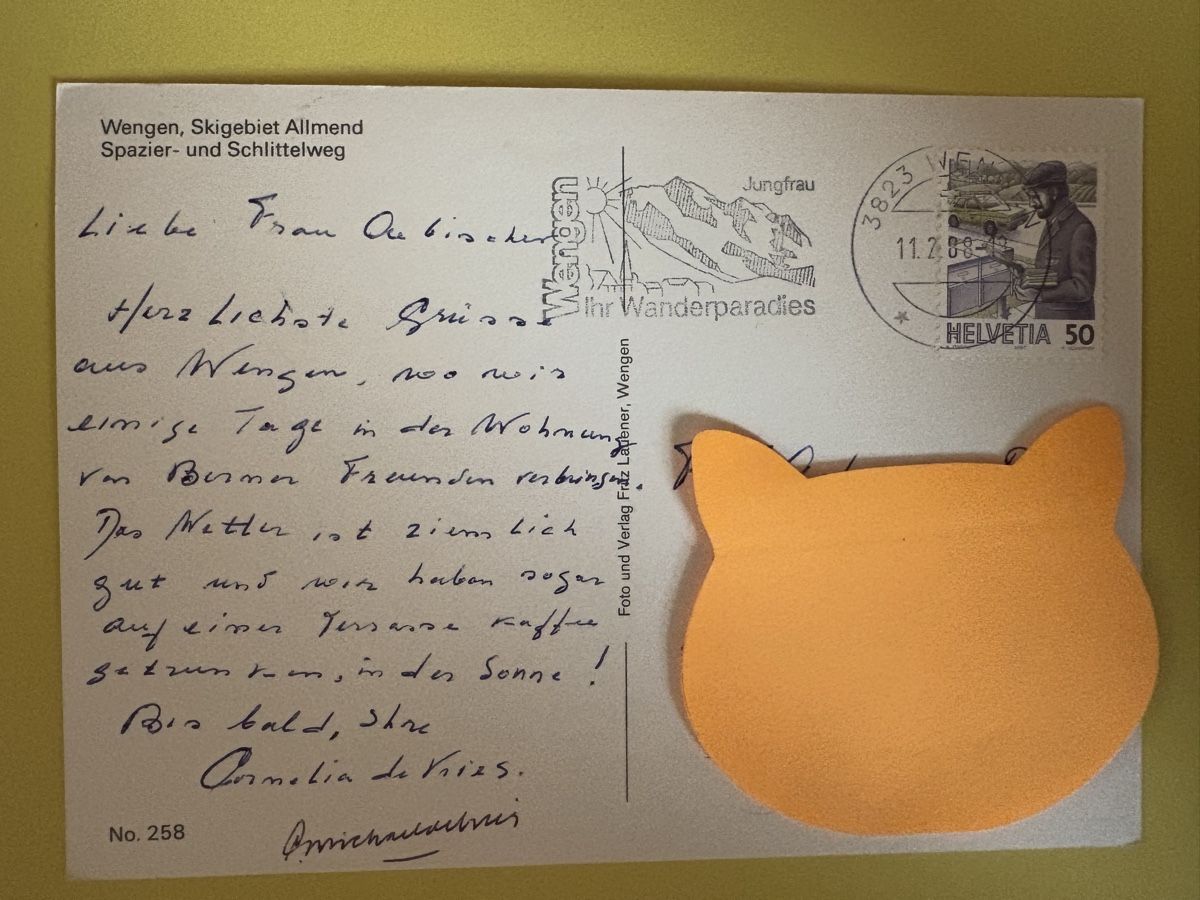 Wengen, Skigebiet Allmend
Spazier- und Schlittelweg
Liebe Frau Aebischer
Herzlichste Grüsse
aus Wengen, wo wir
einige Tage in der Wohnung
von Berner Freunden verbringen.
Das Wetter ist ziemlich
gut und wir haben sogar
auf einer Terrasse Kaffee
getrunken, in der Sonne!
Bis bald, Ihre
Cornelia de Vries.
No. 258
Foto und Verlag Fritz Lauener, Wengen
Wengen
Jungfrau
Ihr Wanderparadies
3823 WEN
11.2.88
HELVETIA 50